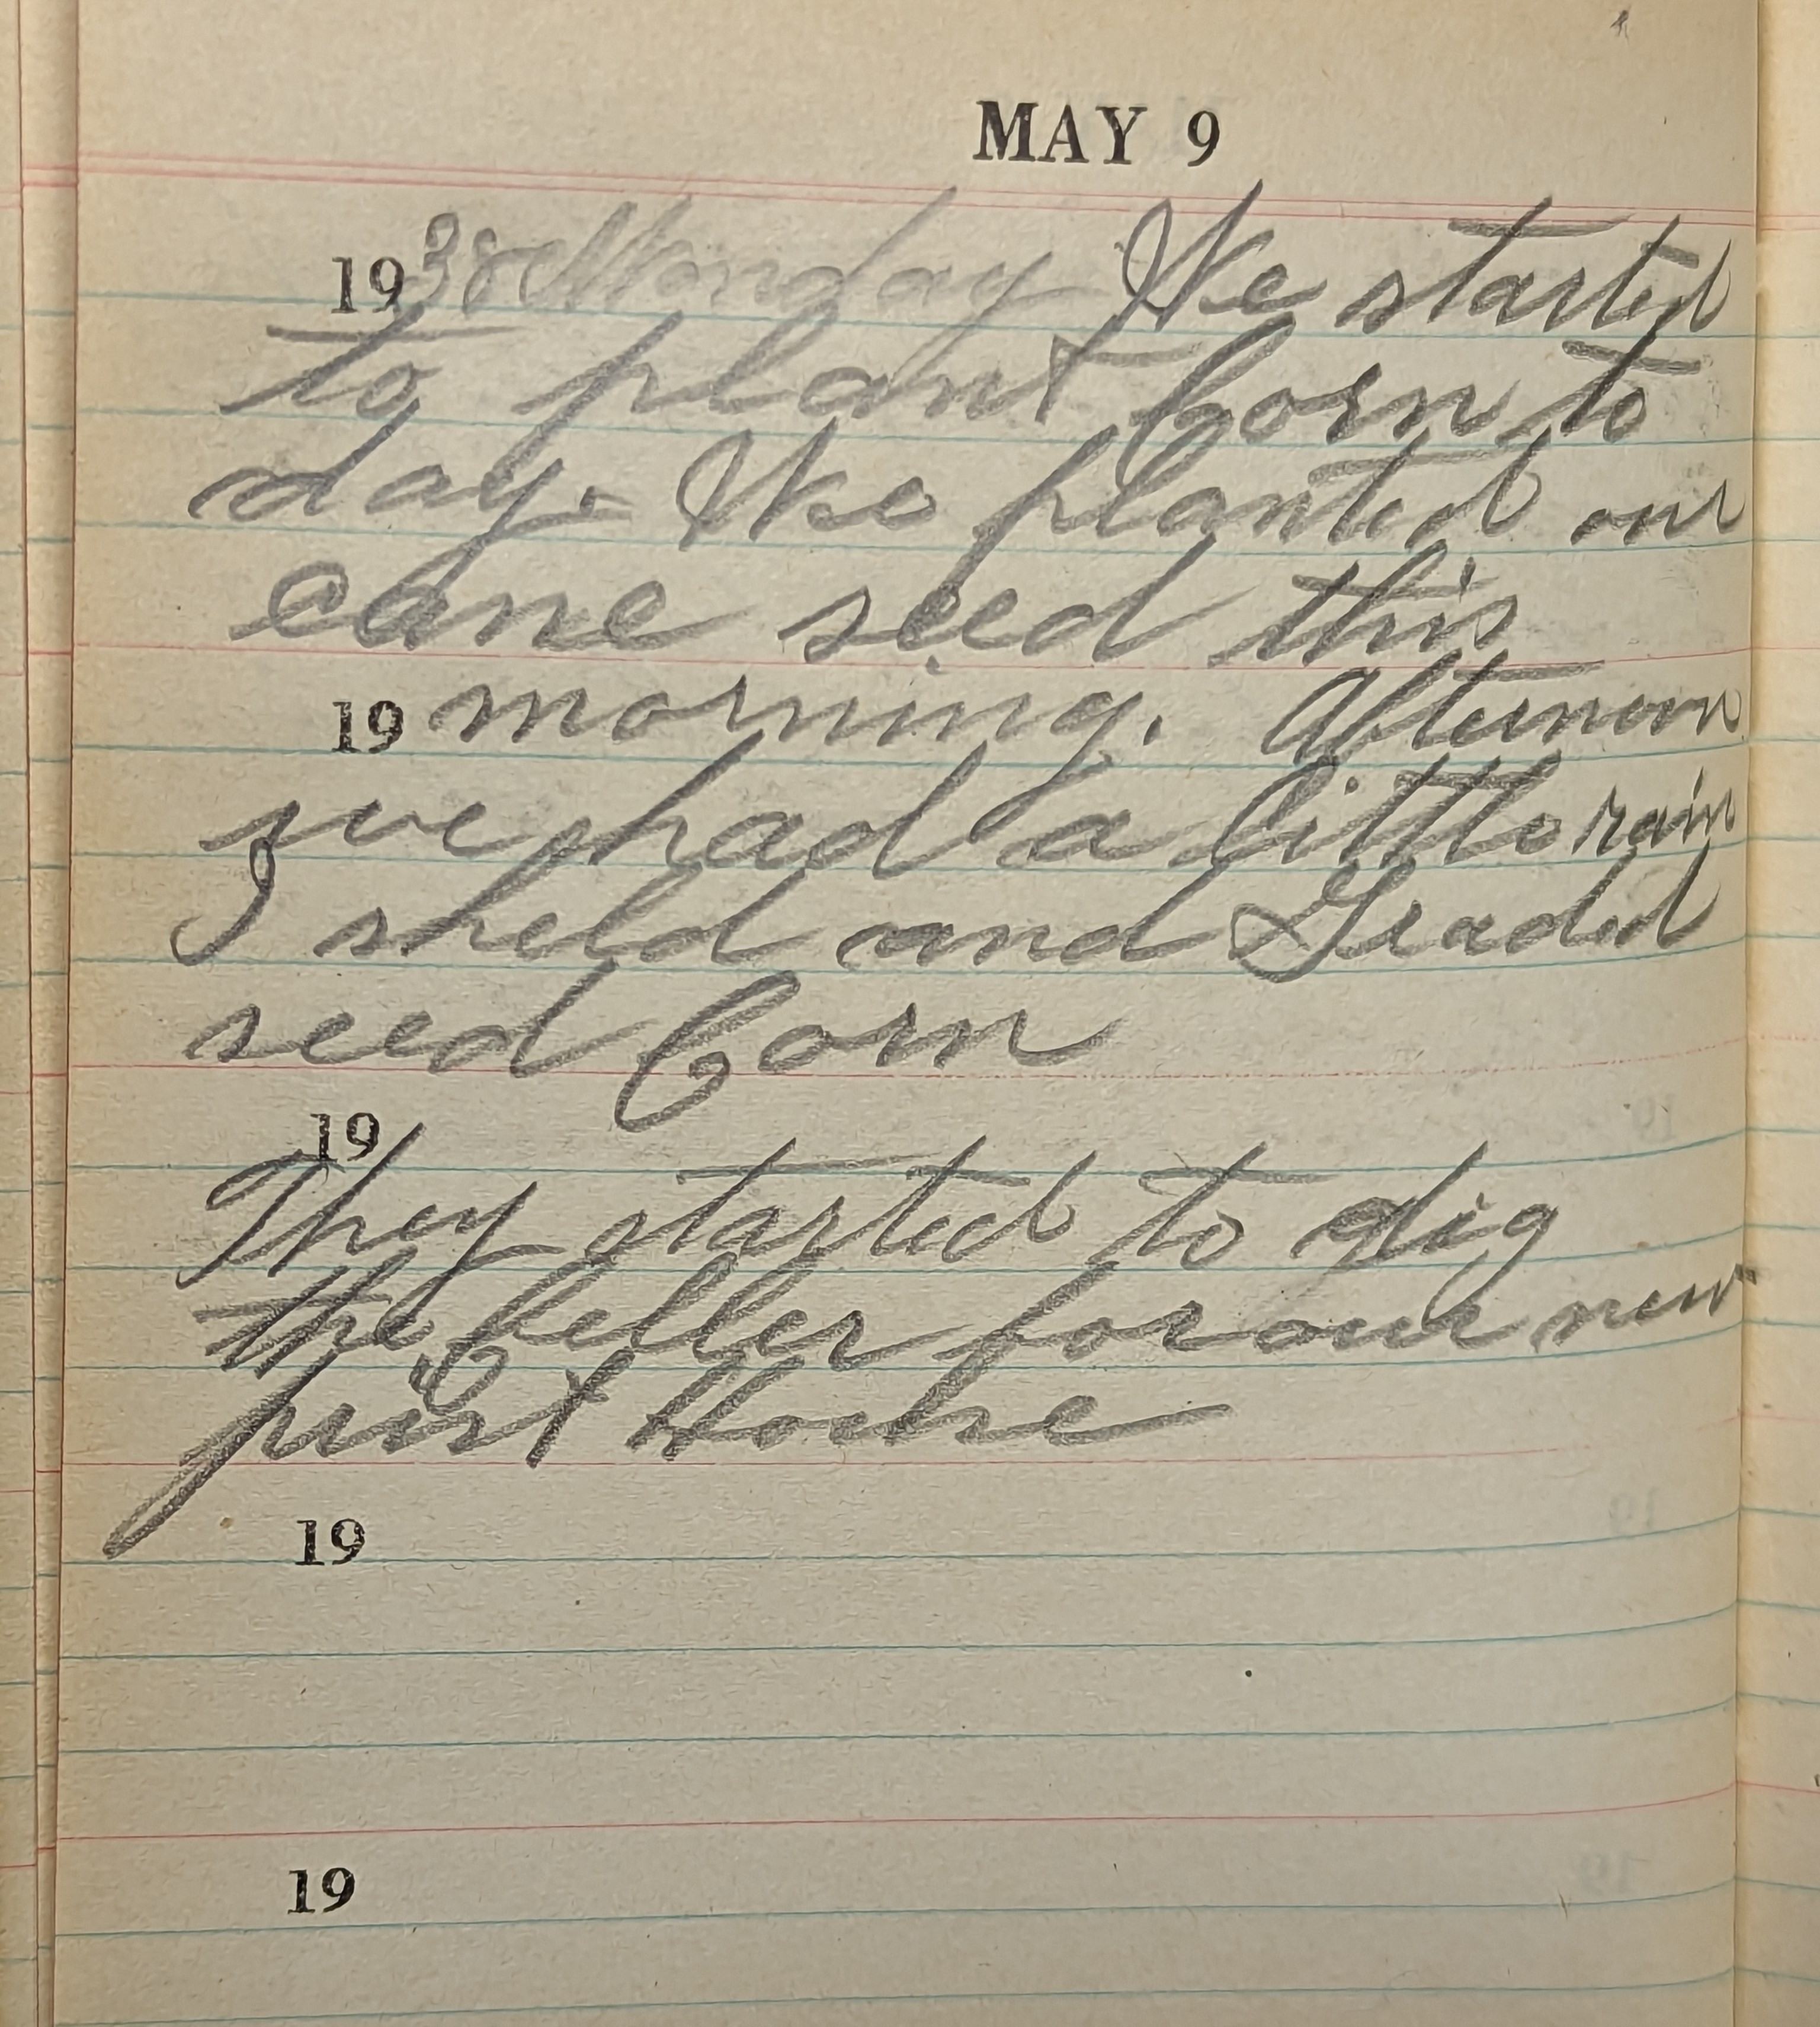 MAY 9
1938 Monday We started
to plant Corn to
day. We planted our
cane seed this
19 morning. Afternoon
we had a little rain
I sheld and Graded
seed Corn
19
They started to dig
the Celler for our new
19
19